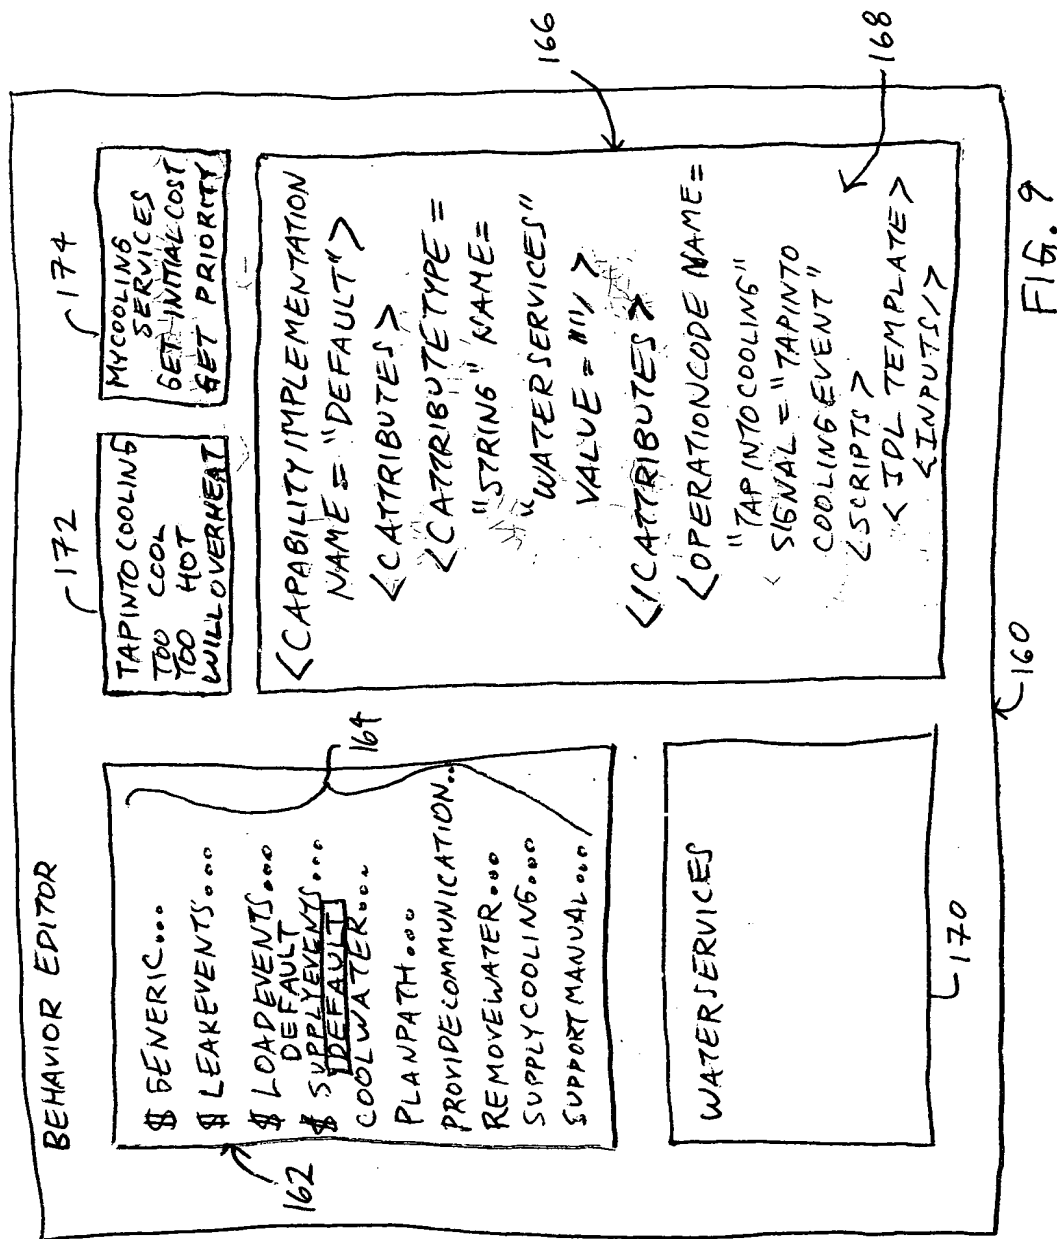 BEHAVIOR EDITOR
162
$ GENERIC...
$ LEAKEVENTS...
$ LOADEVENTS...
DEFAULT
$ SUPPLYEVENTS...
DEFAULT
COOLWATER...
PLANPATH...
PROVIDECOMMUNICATION...
REMOVEWATER...
SUPPLYCOOLING...
SUPPORTMANUAL...
164
WATERSERVICES
170
172
TAPINTOCOOLING
TOO COOL
TOO HOT
WILLOVERHEAT
174
MYCOOLING
SERVICES
GET INITIAL COST
GET PRIORITY
<CAPABILITYIMPLEMENTATION
NAME = "DEFAULT">
<CATTRIBUTES>
<CATTRIBUTE TYPE =
"STRING" NAME=
"WATERSERVICES"
VALUE = ""/>
</CATTRIBUTES>
<OPERATIONCODE NAME=
"TAPINTOCOOLING"
SIGNAL = "TAPINTO
COOLINGEVENT"
<SCRIPTS>
<IDL TEMPLATE>
<INPUTS/>
166
168
160
FIG. 9